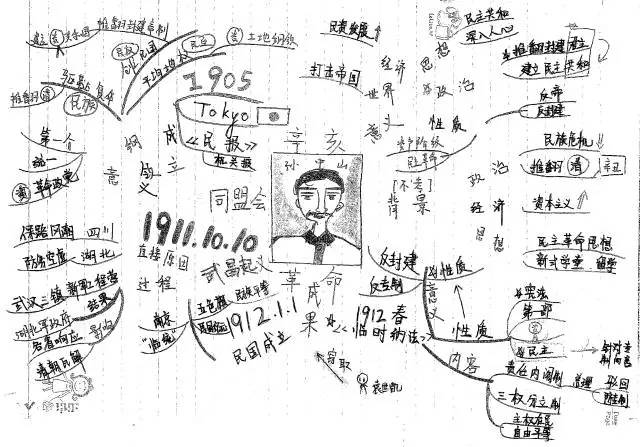 推翻封建帝制
民权
创立民国
平均地权
民生
土地纲领
驱除
民族
推翻
清
1905
Tokyo
成立
《民报》
机关报
纲
意义
第一个
统一
革命政党
同盟会
辛亥
孙中山
革命
民资发展
打击帝国
经济
世界
思想
政治
意义
性质
民主共和
深入人心
推翻封建君主
建立民主共和
反帝
反封建
资产阶级
民主革命
[不考]
背景
政治
民族危机
推翻
清
辛丑
经济
资本主义
思想
民主革命思想
新式学堂
留学
1911.10.10
武昌起义
直接原因
保路风潮
四川
防务空虚
湖北
过程
武汉三镇
结果
湖北军政府
各省响应
清朝瓦解
影响
南京
"临统"
五色旗
民族平等
1912.1.1
民国成立
成果
窃取
袁世凯
《1912春
临时约法》
意义
反封建
反专制
性质
性质
宪法
第一部
民主
内容
责任内阁制
总理
驳回
三权分立制
主权在民
自由平等
针对袁